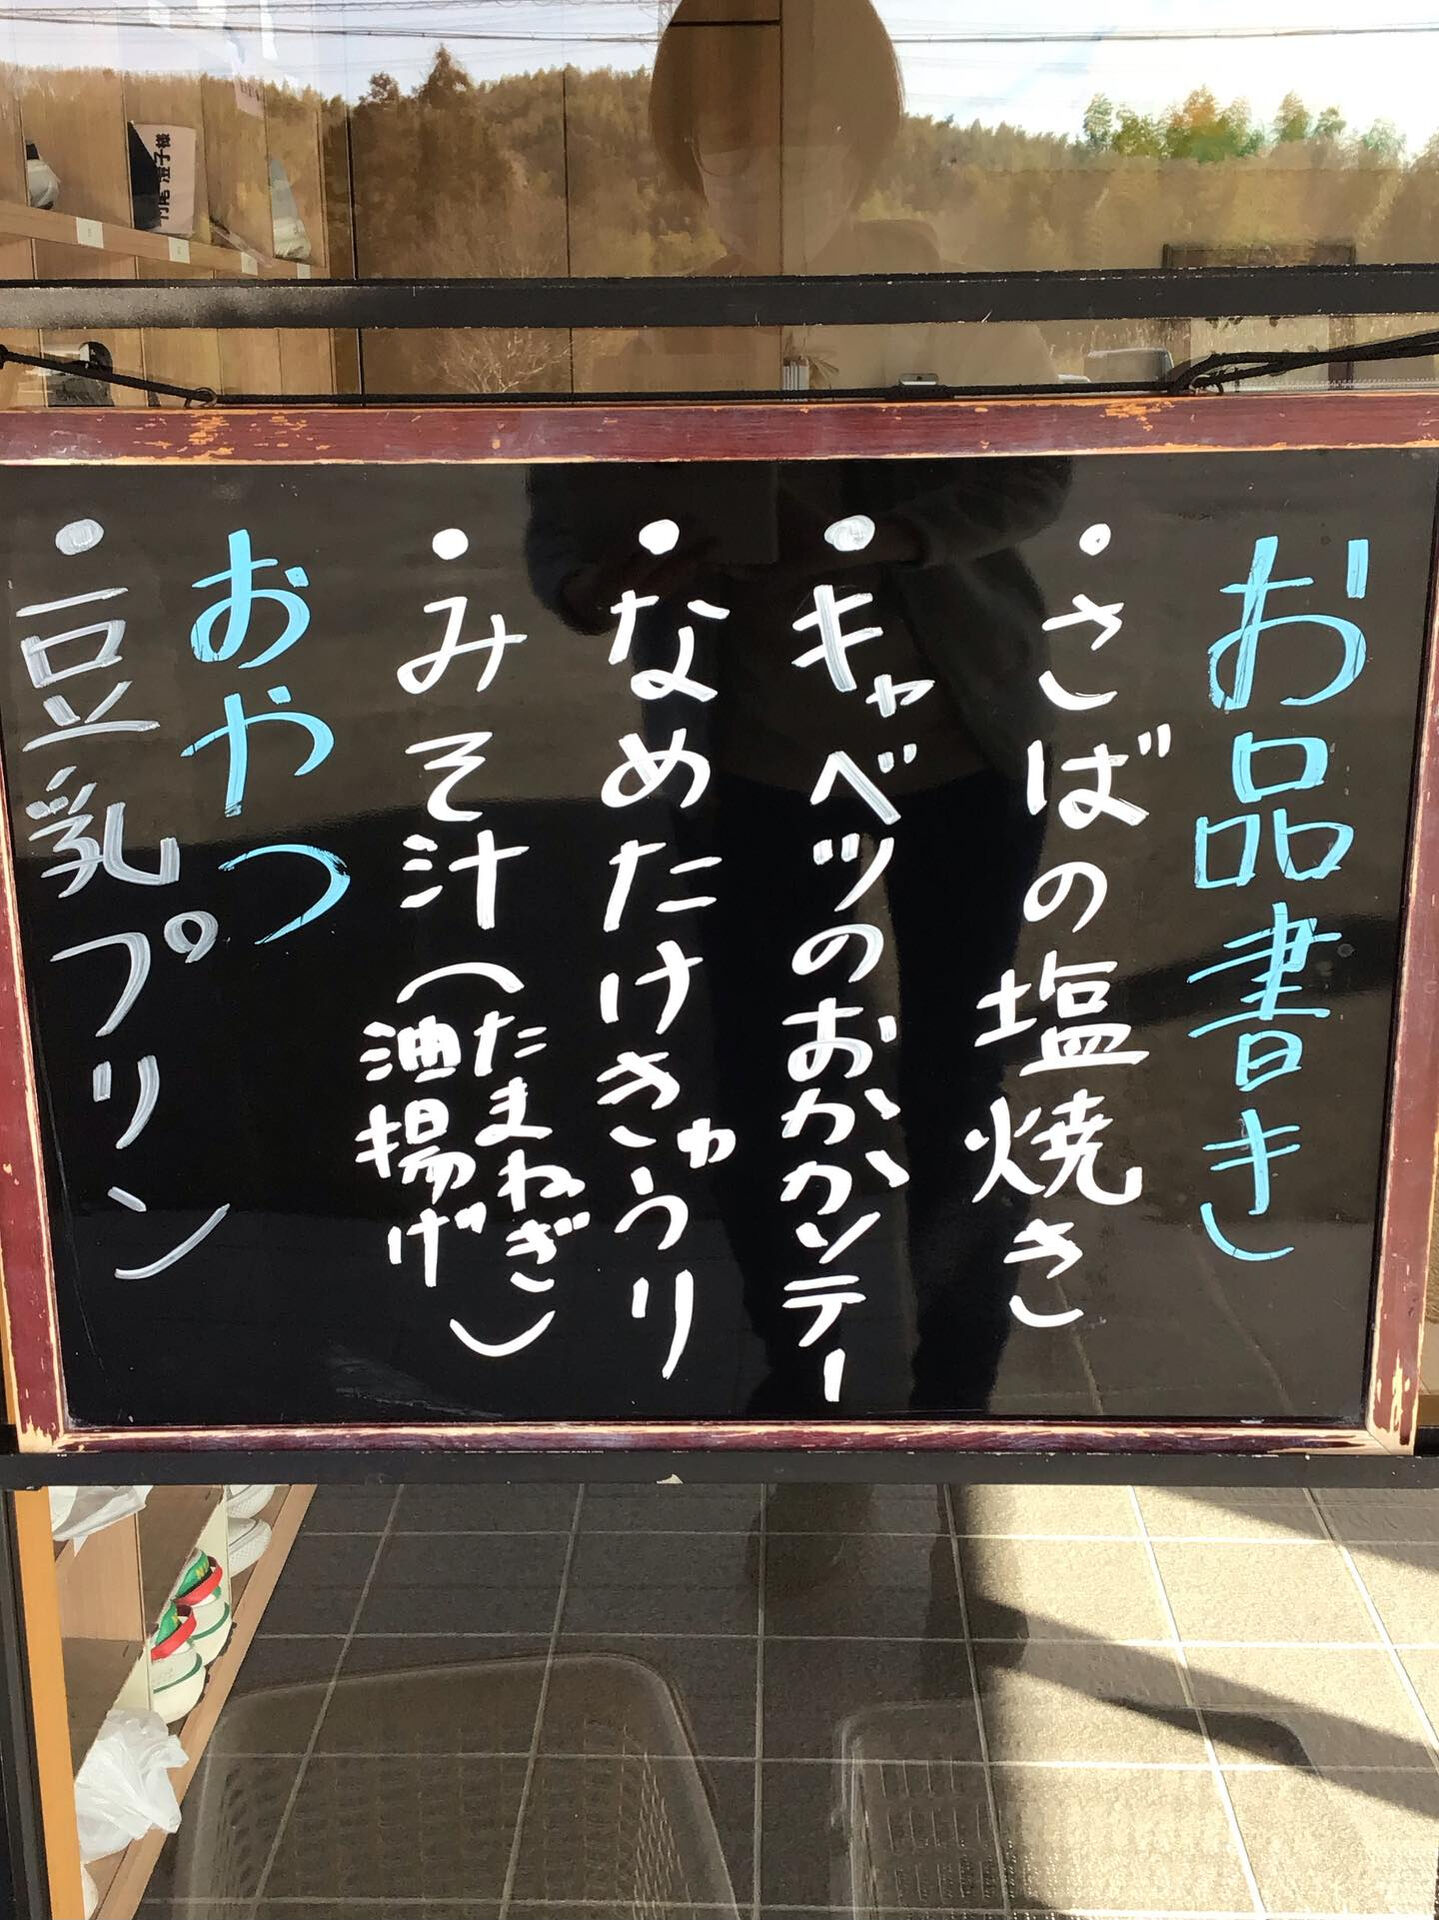 お品書き
・さばの塩焼き
・キャベツのおかかソテー
・なめたけきゅうり
・みそ汁(たまねぎ
油揚げ)
おやつ
・豆乳プリン